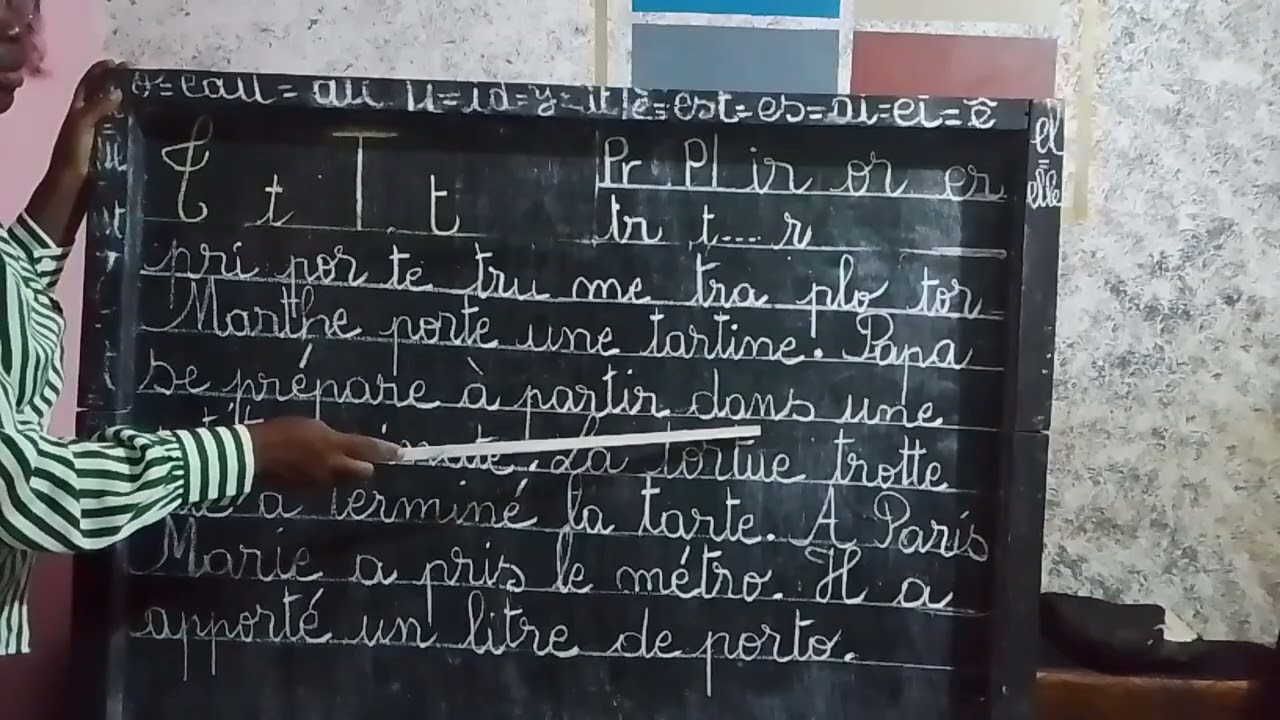 o=eau=au u=id=y=it è=est=es=ai=ei=ê
el
=
elle
T t T t
Pr Pl ir or er
tr t...r
pri por te tru me tra plo tor
Marthe porte une tartine. Papa
se prépare à partir dans une
La tortue trotte
a terminé la tarte. A Paris
Marie a pris le métro. Il a
apporté un litre de porto.